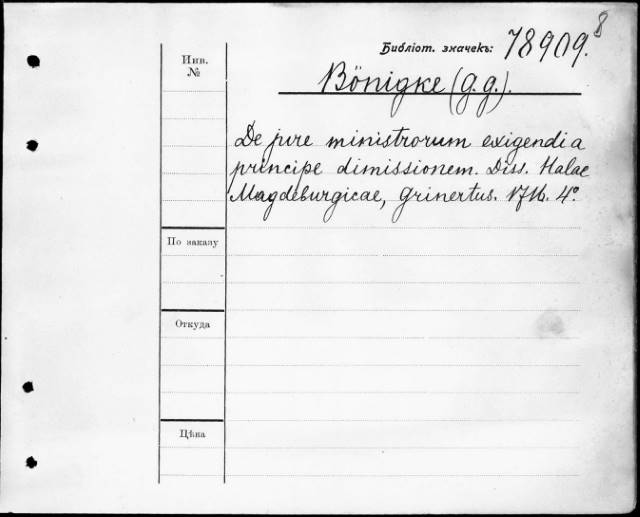 8
Библіот. значекъ: 78909.
Инв.
№
Bönigke (G. G.).
De jure ministrorum exigendi a
principe dimissionem. Diss. Halae
Magdeburgicae, Grinertus. 1716. 4°.
По заказу
Откуда
Цѣна